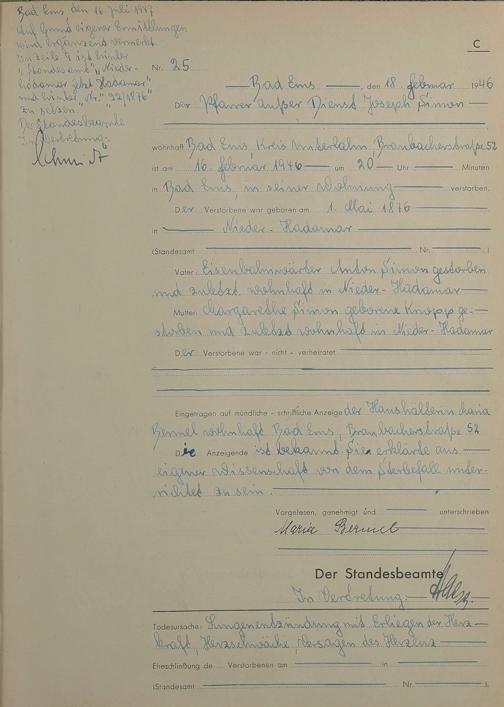 Bad Ems den 16 Juli 1947
Auf Grund eigener Ermittlungen
wird ergänzend vermerkt:
In Zeile 7 ist hinter
"Standesamt" "Nieder-
hadamar jetzt Hadamar"
und hinter "Nr." "22/1876"
zu setzen"
Der Standesbeamte
In Vertretung:
C
Nr. 25
Bad Ems, den 18. Februar 1946
Der Pfarrer außer Dienst Joseph Simon
wohnhaft Bad Ems, Kreis Unterlahn, Braubacherstraße 52
ist am 16. Februar 1946 um 20 Uhr Minuten
in Bad Ems, in seiner Wohnung verstorben.
Der Verstorbene war geboren am 1. Mai 1876
in Nieder-Hadamar
(Standesamt Nr. )
Vater: Eisenbahnwärter Anton Simon gestorben
und zuletzt wohnhaft in Nieder-Hadamar
Mutter: Margarethe Simon geborene Knopp ge-
storben und zuletzt wohnhaft in Nieder-Hadamar
Der Verstorbene war - nicht - verheiratet
Eingetragen auf mündliche - schriftliche Anzeige der Haushälterin Maria
Bermel wohnhaft Bad Ems, Braubacherstraße 52
Die Anzeigende ist bekannt. Sie erklärte aus
eigener Wissenschaft von dem Sterbefall unter-
richtet zu sein.
Vorgelesen, genehmigt und unterschrieben
Maria Bermel
Der Standesbeamte
In Vertretung:
Todesursache: Lungenentzündung mit Erliegen der Herz-
kraft, Herzschwäche, Versagen des Herzens
Eheschließung de Verstorbenen am in
(Standesamt Nr. ).